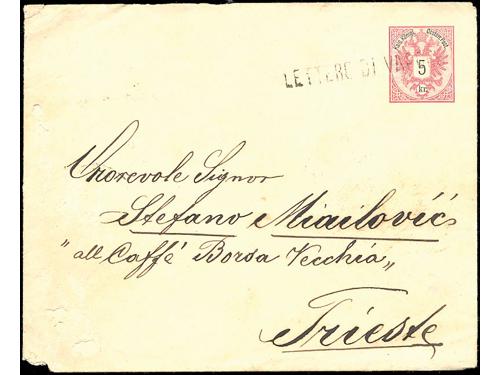 LETTERE DI VAP
5
kr.
Onorevole Signor
Stefano Miailović
"all Caffé Borsa Vecchia"
Trieste